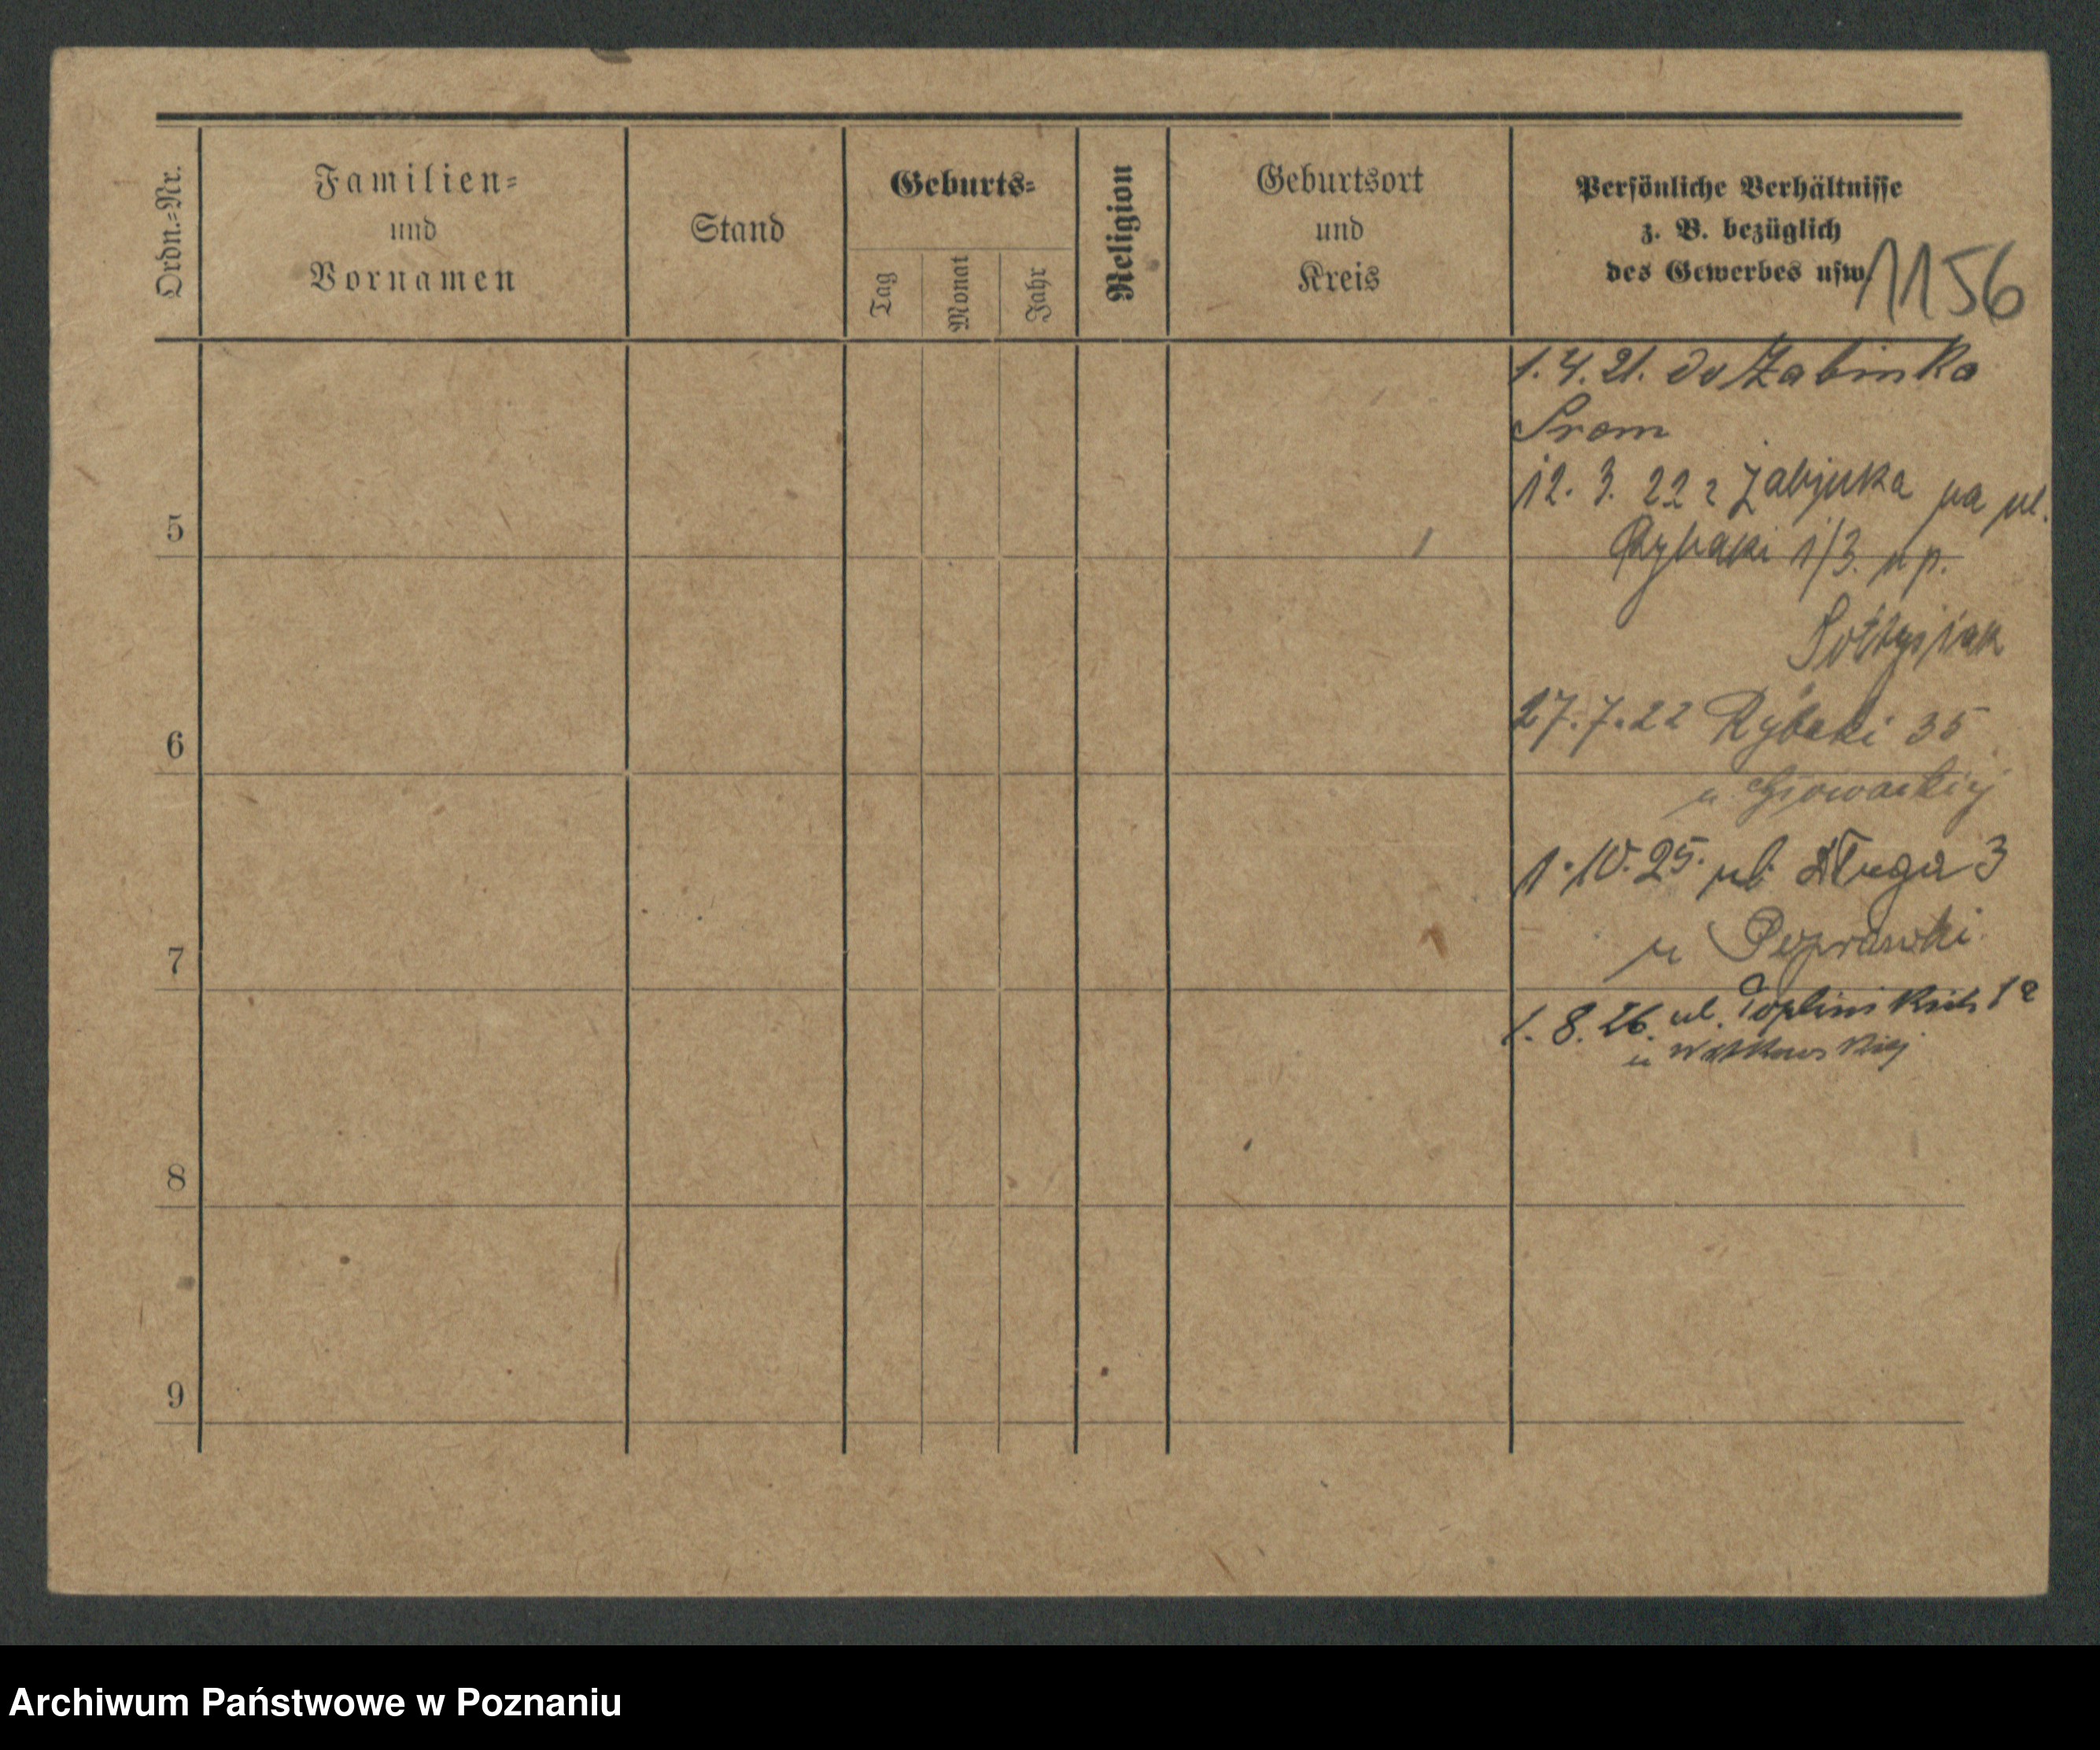 Ordn.=Nr.
Familien=
und
Vornamen
Stand
Geburts=
Tag
Monat
Jahr
Religion
Geburtsort
und
Kreis
Persönliche Verhältnisse
z. B. bezüglich
des Gewerbes usw.
1156
1. 4. 21. do Żabinka
Śrem
12. 3. 22 z Żabinka na ul.
5
Rybaki 1/3. u p.
Sołtysiak
27.7.22 Rybaki 35
6
u
1.10.25. ul. Długa 3
u Poprawski
7
1. 8. 26. ul.
u Witkowskiej
8
9
Archiwum Państwowe w Poznaniu